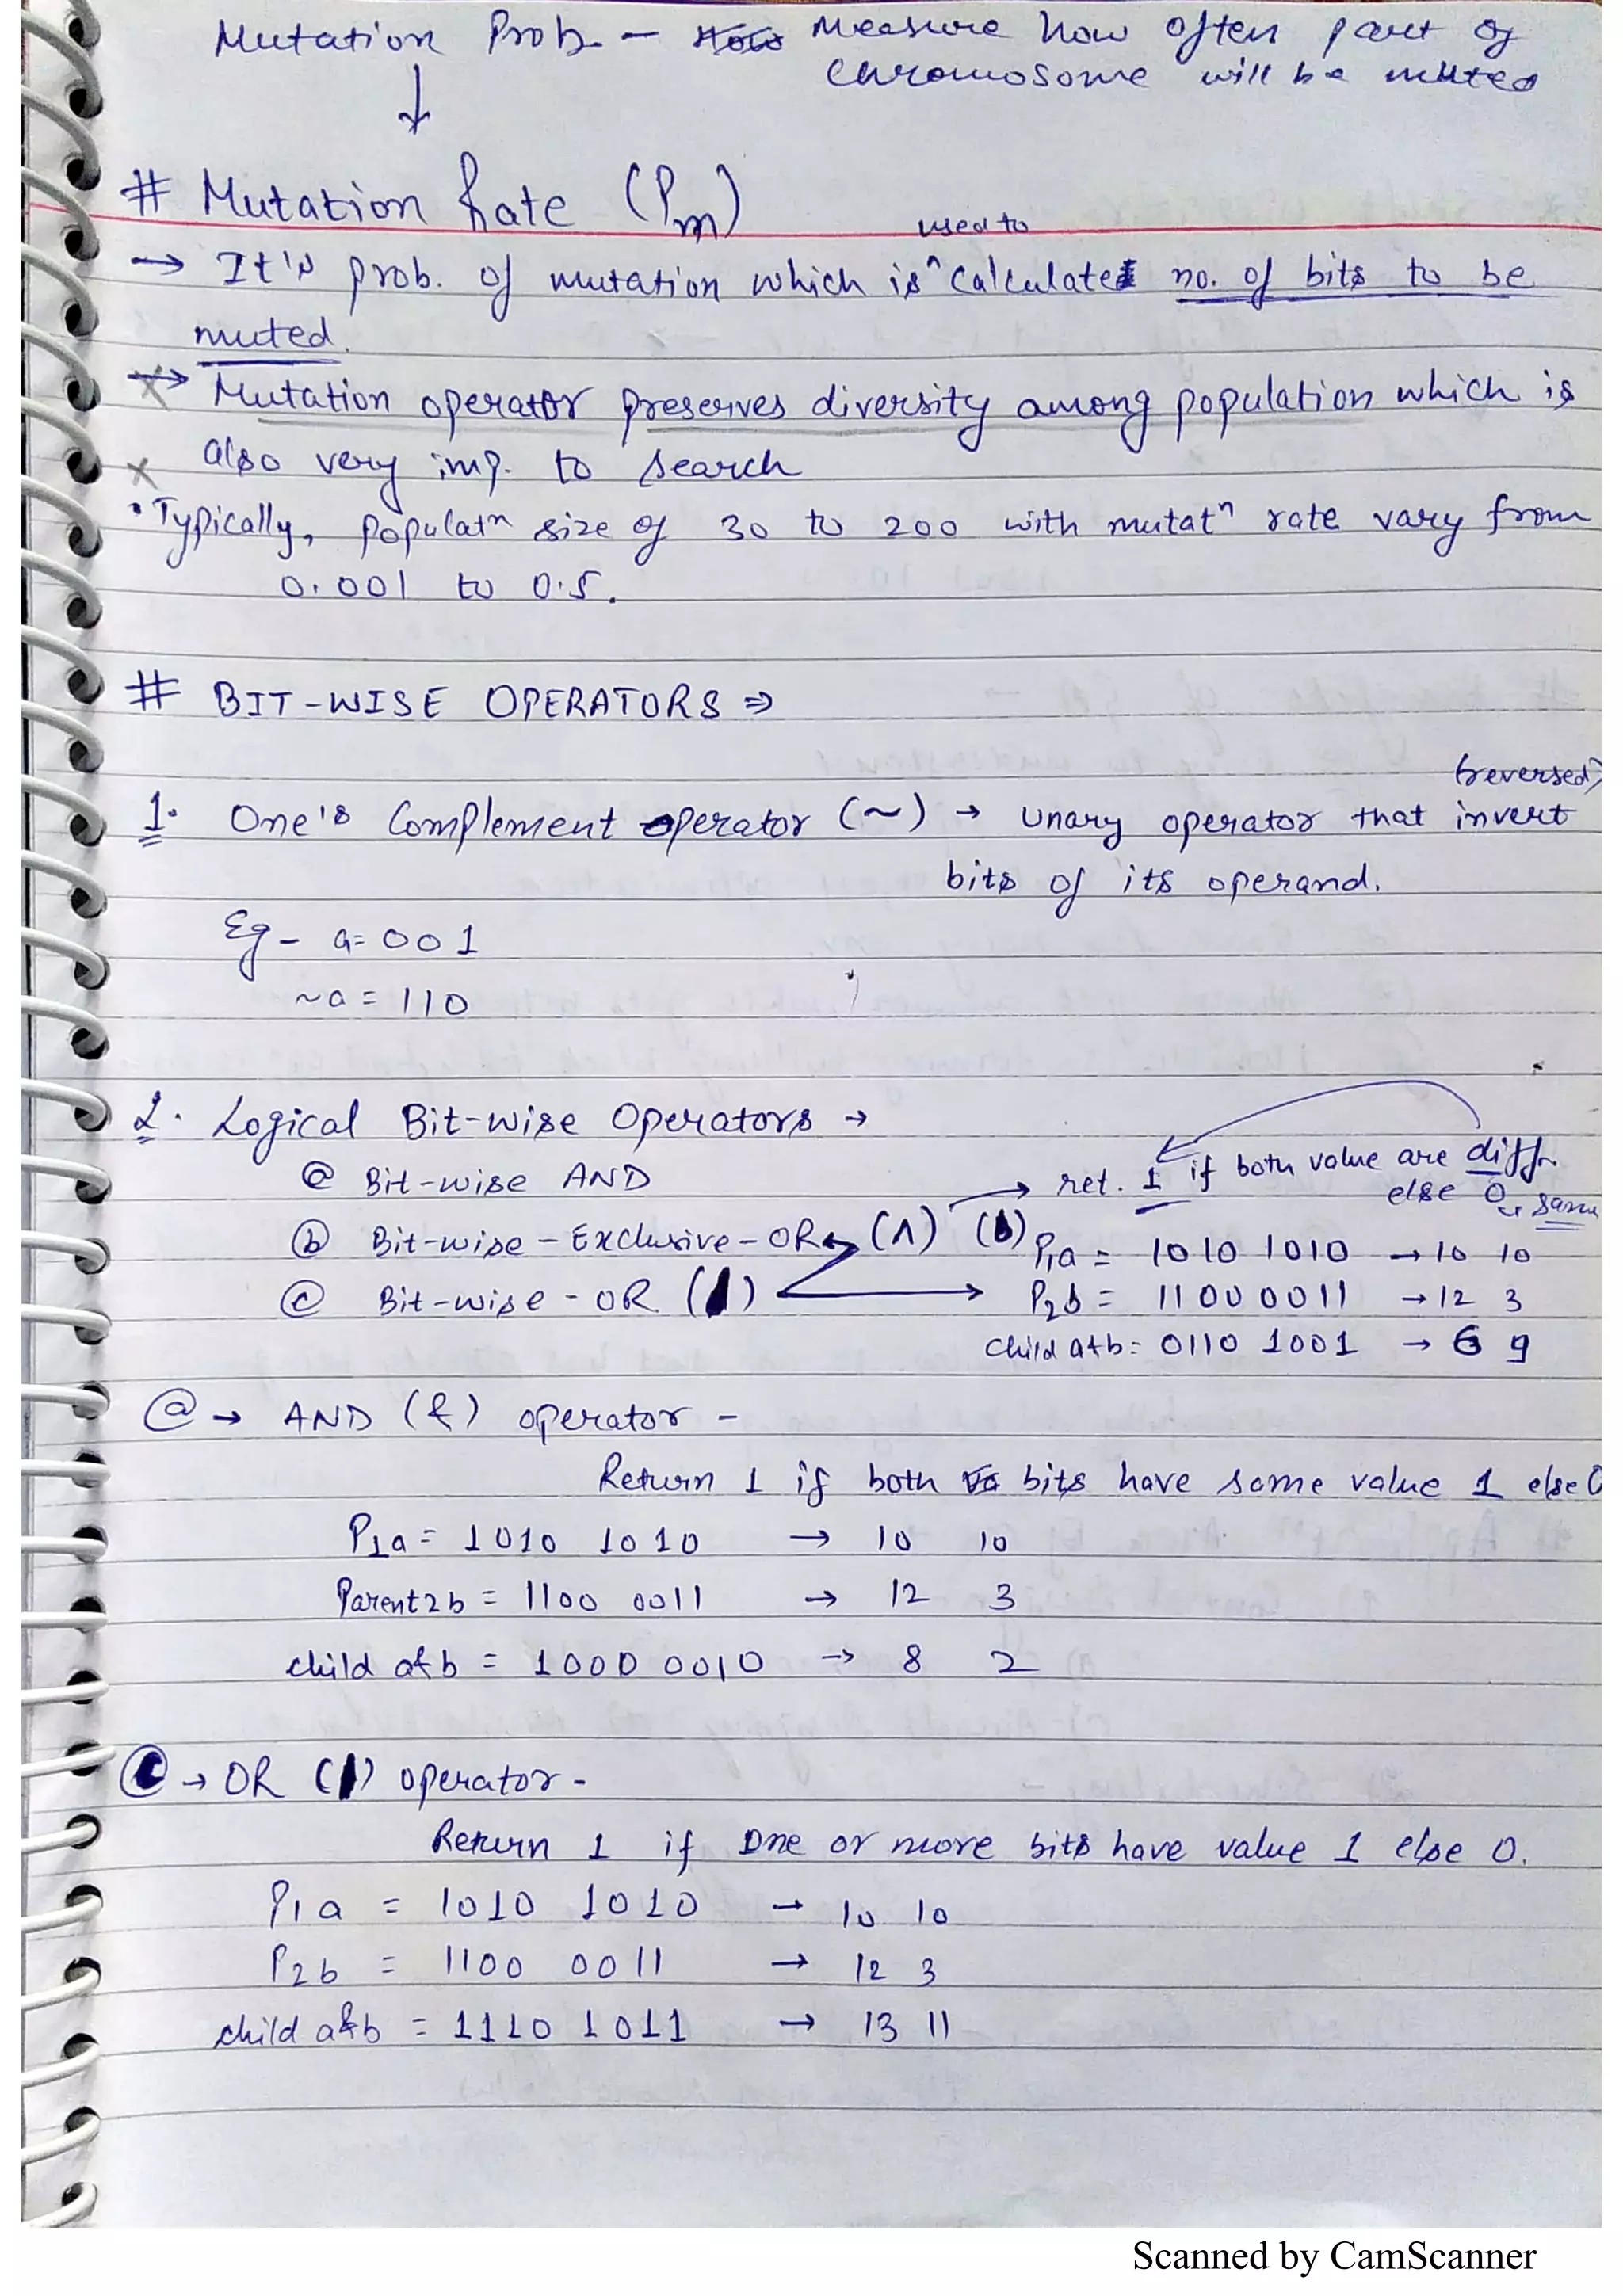 Mutation Prob. - Measure how often part of
chromosome will be muted
↓
# Mutation Rate (Pm)
used to
→ It's prob. of mutation which is ^ calculate no. of bits to be
muted.
→ Mutation operator preserves diversity among population which is
also very imp. to search
• Typically, populatn size of 30 to 200 with mutatn rate vary from
0.001 to 0.5.
# BIT-WISE OPERATORS ⇒
(reversed)
1. One's Complement operator (~) → Unary operator that invert
bits of its operand.
Eg - a = 001
~a = 110
2. Logical Bit-wise Operators →
ⓐ Bit-wise AND
→ ret. 1 if both value are diff.
else 0 same
ⓑ Bit-wise - Exclusive - OR (∧) (b) P1a = 1010 1010 → 10 10
ⓒ Bit-wise - OR (|) → P2b = 1100 0011 → 12 3
child a+b = 0110 1001 → 6 9
ⓐ → AND (&) operator -
Return 1 if both bits have same value 1 else 0
P1a = 1010 1010 → 10 10
Parent2b = 1100 0011 → 12 3
child a&b = 1000 0010 → 8 2
ⓒ → OR (|) operator -
Return 1 if one or more bits have value 1 else 0.
P1a = 1010 1010 → 10 10
P2b = 1100 0011 → 12 3
child a&b = 1110 1011 → 13 11
Scanned by CamScanner